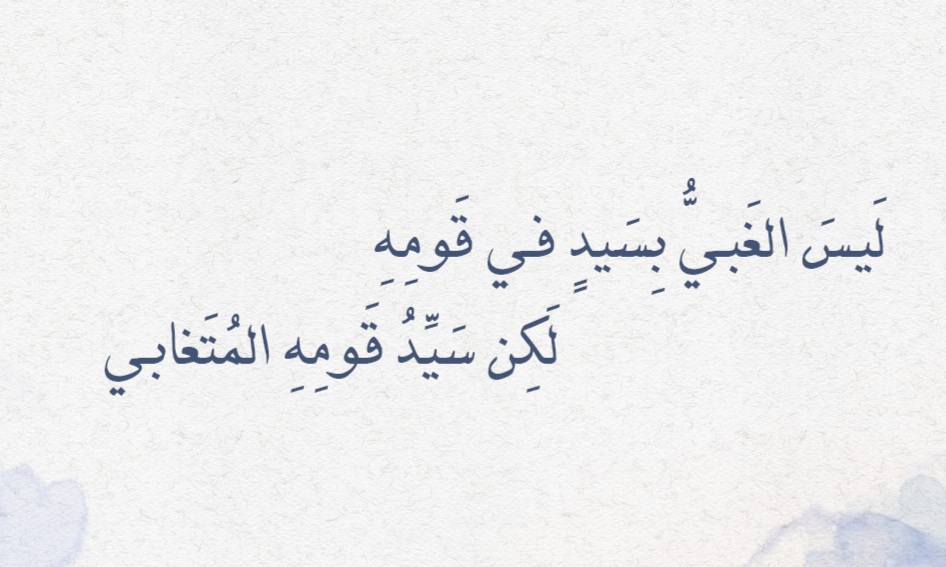 لَيسَ الغَبيُّ بِسَيدٍ في قَومِهِ
لَكِن سَيِّدُ قَومِهِ المُتَغابي